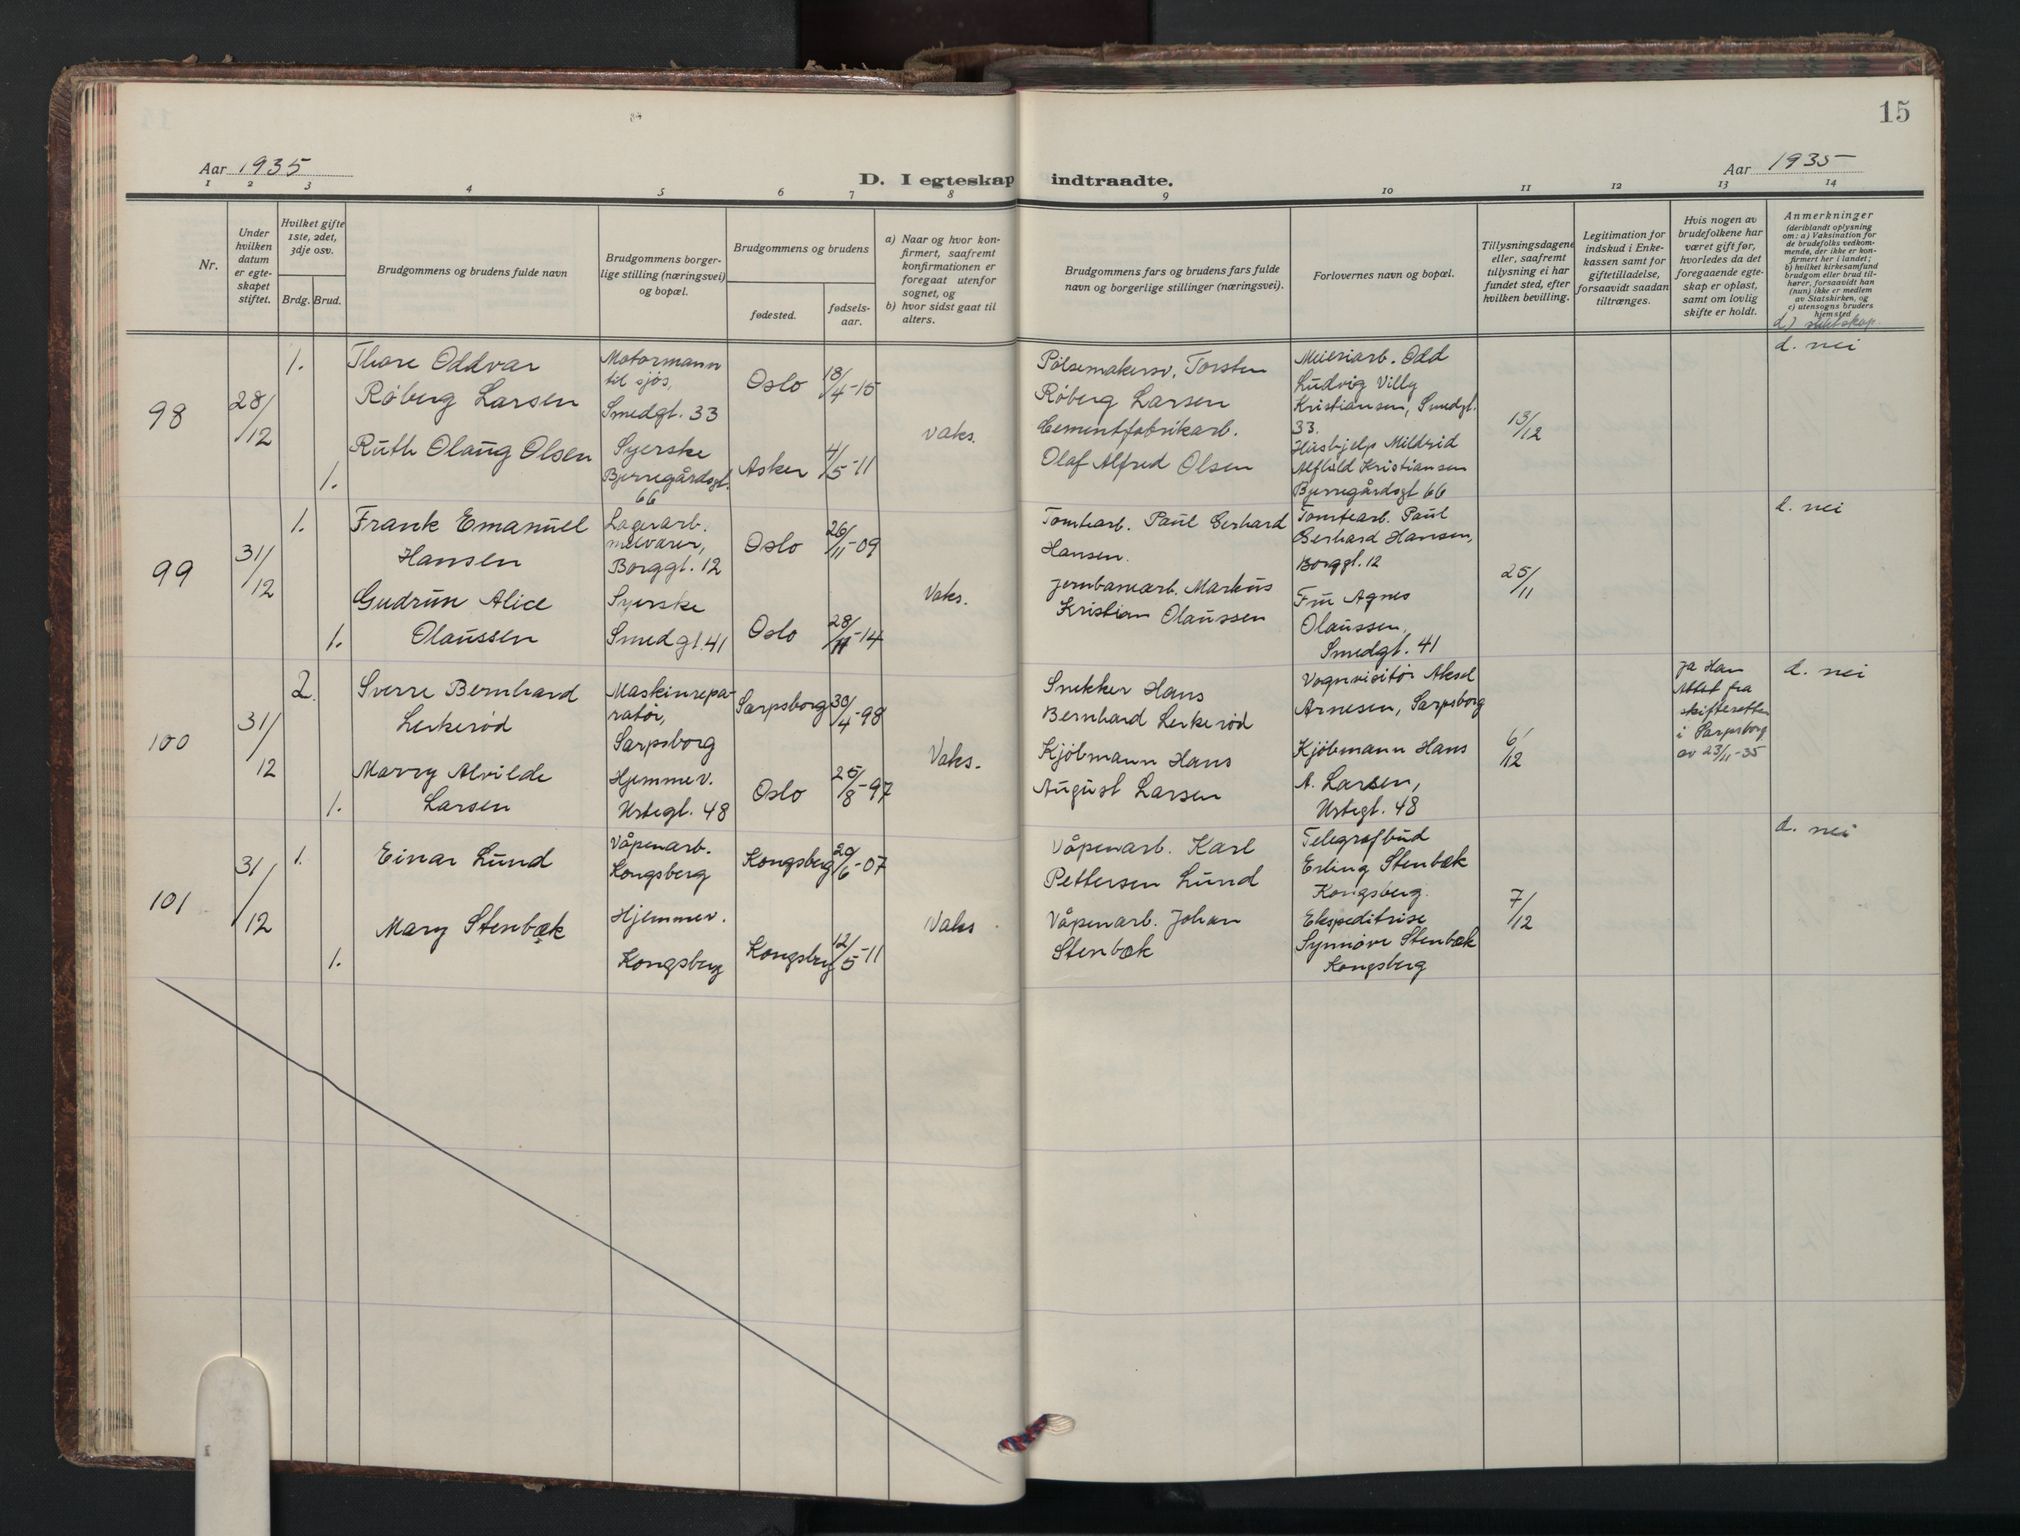 15
Aar 1935
Aar 1935
D. I egteskap indtraadte.
1 2 3 4 5 6 7 8 9 10 11 12 13 14
Nr.
Under
hvilken
datum
er egte-
skapet
stiftet.
Hvilket gifte
1ste, 2det,
3dje osv.
Brdg. Brud.
Brudgommens og brudens fulde navn
Brudgommens borger-
lige stilling (næringsvei)
og bopæl.
Brudgommens og brudens
fødested.
fødsels-
aar.
a) Naar og hvor kon-
firmert, saafremt
konfirmationen er
foregaat utenfor
sognet, og
b) hvor sidst gaat til
alters.
Brudgommens fars og brudens fars fulde
navn og borgerlige stillinger (næringsvei).
Forlovernes navn og bopæl.
Tillysningsdagene
eller, saafremt
tillysning ei har
fundet sted, efter
hvilken bevilling.
Legitimation for
indskud i Enke-
kassen samt for
giftetilladelse,
forsaavidt saadan
tiltrænges.
Hvis nogen av
brudefolkene har
været gift før,
hvorledes da det
foregaaende egte-
skap er opløst,
samt om lovlig
skifte er holdt.
Anmerkninger
(deriblandt oplysning
om: a) Vaksination for
de brudefolks vedkom-
mende, der ikke er kon-
firmert her i landet;
b) hvilket kirkesamfund
brudgom eller brud til-
hører, forsaavidt han
(hun) ikke er medlem
av Statskirken, og
c) utensogns bruders
hjemsted
d) slektskap.
98
28/12
1.
Thore Oddvar
Røberg Larsen
Motormann
til sjøs,
Smedgt. 33
Oslo
18/4-15
Ruth Olaug Olsen
1.
Syerske
Bjerregårdsgt.
66
Asker
4/5-11
Vaks.
Pølsemakersv. Torsten
Røberg Larsen
Cementfabrikarb.
Olaf Alfred Olsen
Meieriarb. Odd
Ludvig Villy
Kristiansen, Smedgt.
33.
Husbjelp Mildrid
Alfhild Kristiansen
Bjerregårdsgt 66
13/12
d. nei
99
31/12
1.
Frank Emanuel
Hansen
Lagerarb.
melvarer,
Borggt. 12
Oslo
26/11-09
Gudrun Alice
Olaussen
1.
Syerske
Smedgt. 41
Oslo
28/11-14
Vaks.
Tomtearb. Paul Gerhard
Hansen.
Jernbanearb. Markus
Kristian Olaussen
Tomtearb. Paul
Gerhard Hansen,
Borggt. 12
Fru Agnes
Olaussen,
Smedgt. 41
25/11
d. nei
100
31/12
2.
Sverre Bernhard
Lerkerød
Maskinrepa-
ratør,
Sarpsborg
Sarpsborg
30/4-98
Marry Alvilde
Larsen
1.
Hjemmev.
Urtegt. 48
Oslo
25/8-97
Vaks.
Snekker Hans
Bernhard Lerkerød
Kjøbmann Hans
August Larsen
Vognvisitør Aksel
Arnesen, Sarpsborg
Kjøbmann Hans
A. Larsen,
Urtegt. 48
6/12
Ja Han
Attest fra
skifteretten
i Sarpsborg
av 23/11-35
d. nei
101
31/12
1.
Einar Lund
Våpenarb.
Kongsberg
Kongsberg
20/6-07
Mary Stenbæk
1.
Hjemmev.
Kongsberg
Kongsberg
12/5-11
Vaks
Våpenarb. Karl
Pettersen Lund
Våpenarb. Johan
Stenbæk
Telegrafbud
Erling Stenbæk
Kongsberg.
Ekspeditrise
Synnøve Stenbæk
Kongsberg
7/12
d. nei